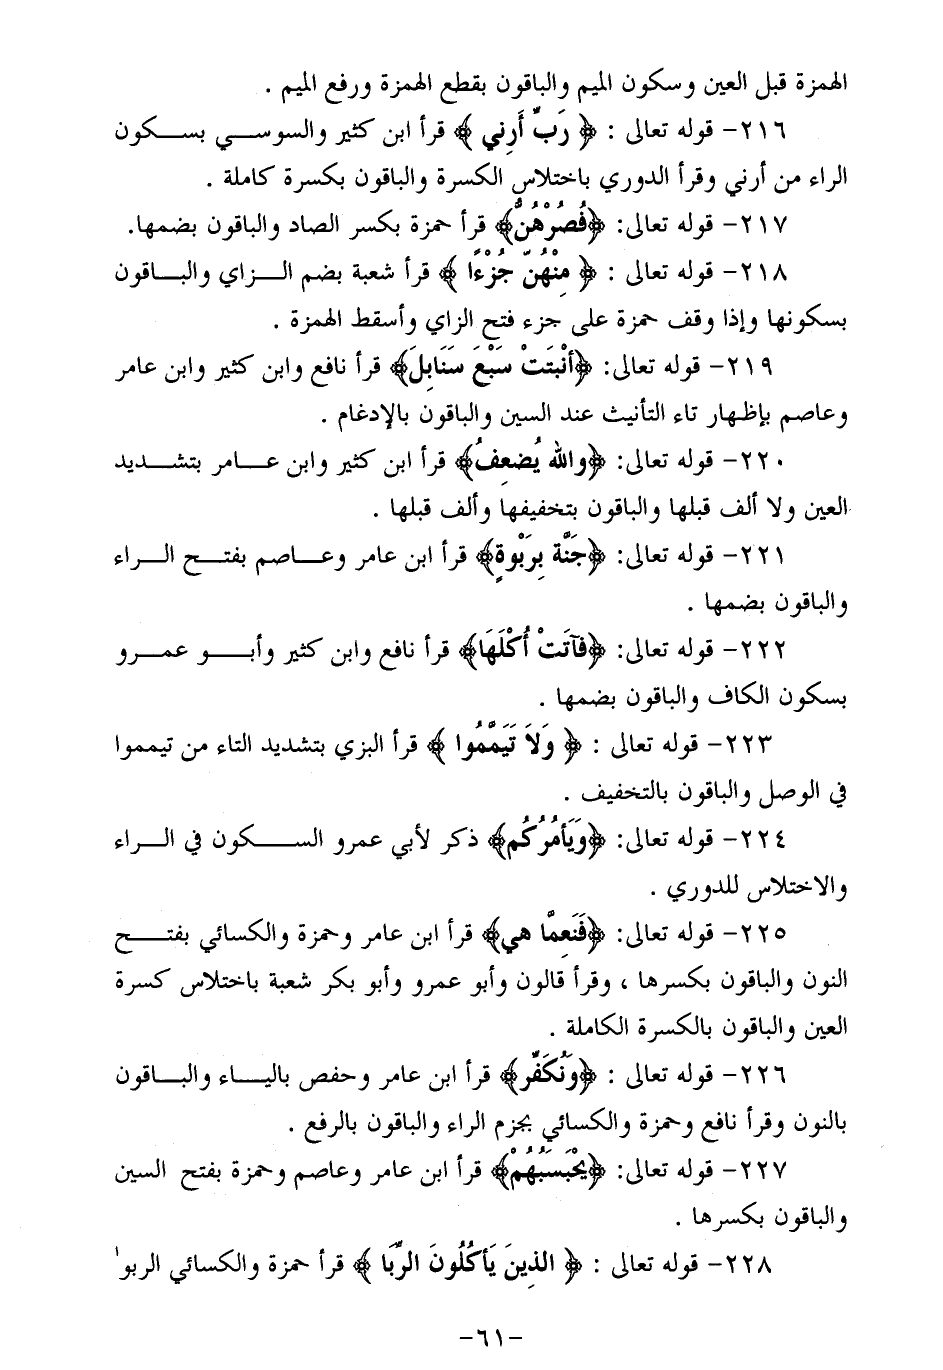 الهمزة قبل العين وسكون الميم والباقون بقطع الهمزة ورفع الميم .
٢١٦- قوله تعالى : ﴿ رَبِّ أَرِنِي ﴾ قرأ ابن كثير والسوسي بسكون
الراء من أرني وقرأ الدوري باختلاس الكسرة والباقون بكسرة كاملة .
٢١٧- قوله تعالى: ﴿فَصُرْهُنَّ﴾ قرأ حمزة بكسر الصاد والباقون بضمها.
٢١٨- قوله تعالى : ﴿ مِنْهُنَّ جُزْءًا ﴾ قرأ شعبة بضم الزاي والباقون
بسكونها وإذا وقف حمزة على جزء فتح الزاي وأسقط الهمزة .
٢١٩- قوله تعالى: ﴿أَنْبَتَتْ سَبْعَ سَنَابِلَ﴾ قرأ نافع وابن كثير وابن عامر
وعاصم بإظهار تاء التأنيث عند السين والباقون بالإدغام .
٢٢٠- قوله تعالى: ﴿والله يُضعِفُ﴾ قرأ ابن كثير وابن عامر بتشديد
العين ولا ألف قبلها والباقون بتخفيفها وألف قبلها .
٢٢١- قوله تعالى: ﴿جَنَّة بِرَبْوةٍ﴾ قرأ ابن عامر وعاصم بفتح الراء
والباقون بضمها .
٢٢٢- قوله تعالى: ﴿فآتَتْ أُكُلَهَا﴾ قرأ نافع وابن كثير وأبو عمرو
بسكون الكاف والباقون بضمها .
٢٢٣- قوله تعالى : ﴿ وَلاَ تَيَمَّمُوا ﴾ قرأ البزي بتشديد التاء من تيمموا
في الوصل والباقون بالتخفيف .
٢٢٤- قوله تعالى: ﴿وَيَأمُرُكُم﴾ ذكر لأبي عمرو السكون في الراء
والاختلاس للدوري .
٢٢٥- قوله تعالى: ﴿فَنِعِمَّا هي﴾ قرأ ابن عامر وحمزة والكسائي بفتح
النون والباقون بكسرها ، وقرأ قالون وأبو عمرو وأبو بكر شعبة باختلاس كسرة
العين والباقون بالكسرة الكاملة .
٢٢٦- قوله تعالى : ﴿وَنُكَفِّر﴾ قرأ ابن عامر وحفص بالياء والباقون
بالنون وقرأ نافع وحمزة والكسائي بجزم الراء والباقون بالرفع .
٢٢٧- قوله تعالى: ﴿يَحْسَبُهُمْ﴾ قرأ ابن عامر وعاصم وحمزة بفتح السين
والباقون بكسرها .
٢٢٨- قوله تعالى : ﴿ الذِينَ يَأكُلُونَ الرِّبَا ﴾ قرأ حمزة والكسائي الربوا
-٦١-